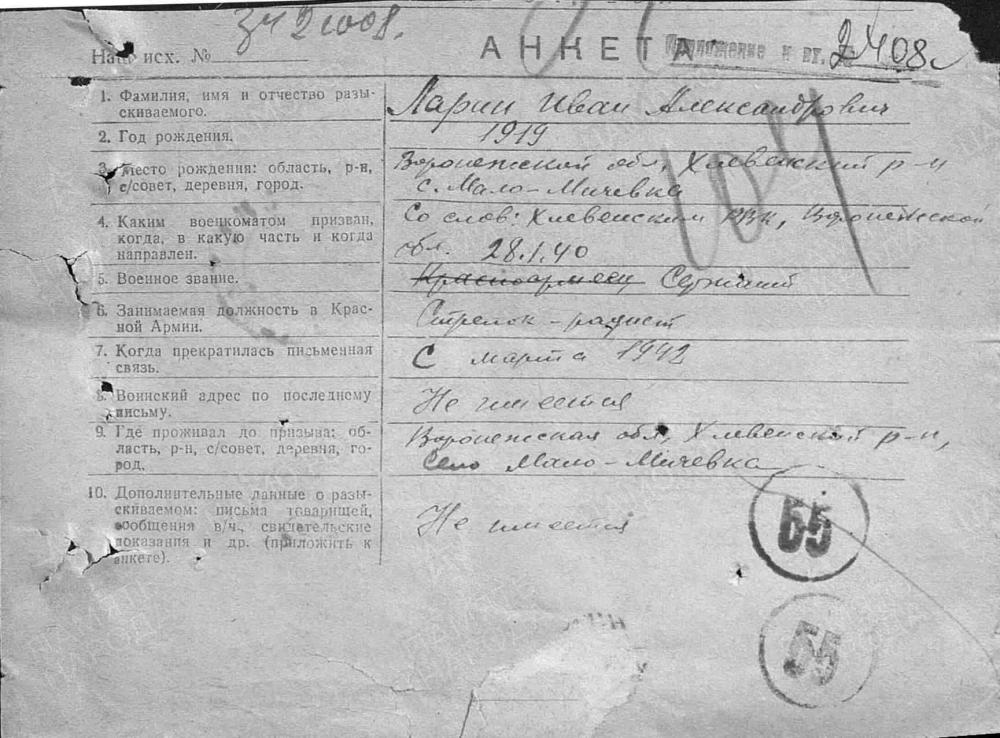 342008.
Наш исх. №
АНКЕТА
Приложение к вх. № 2408
1. Фамилия, имя и отчество разы-
скиваемого.
Ларин Иван Александрович
2. Год рождения.
1919
3. Место рождения: область, р-н,
с/совет, деревня, город.
Воронежской обл, Хлевенский р-н
с. Мало-Мичевка
4. Каким военкоматом призван,
когда, в какую часть и когда
направлен.
Со слов: Хлевенским РВК, Воронежской
обл. 28.1.40
5. Военное звание.
Красноармеец Сержант
6. Занимаемая должность в Крас-
ной Армии.
Стрелок-радист
7. Когда прекратилась письменная
связь.
С марта 1942
8. Воинский адрес по последнему
письму.
Не имеется
9. Где проживал до призыва: об-
ласть, р-н, с/совет, деревня, го-
род.
Воронежская обл, Хлевенский р-н,
село Мало-Мичевка
10. Дополнительные данные о разы-
скиваемом: письма товарищей,
сообщения в/ч., свидетельские
показания и др. (приложить к
анкете).
Не имеется
55
55